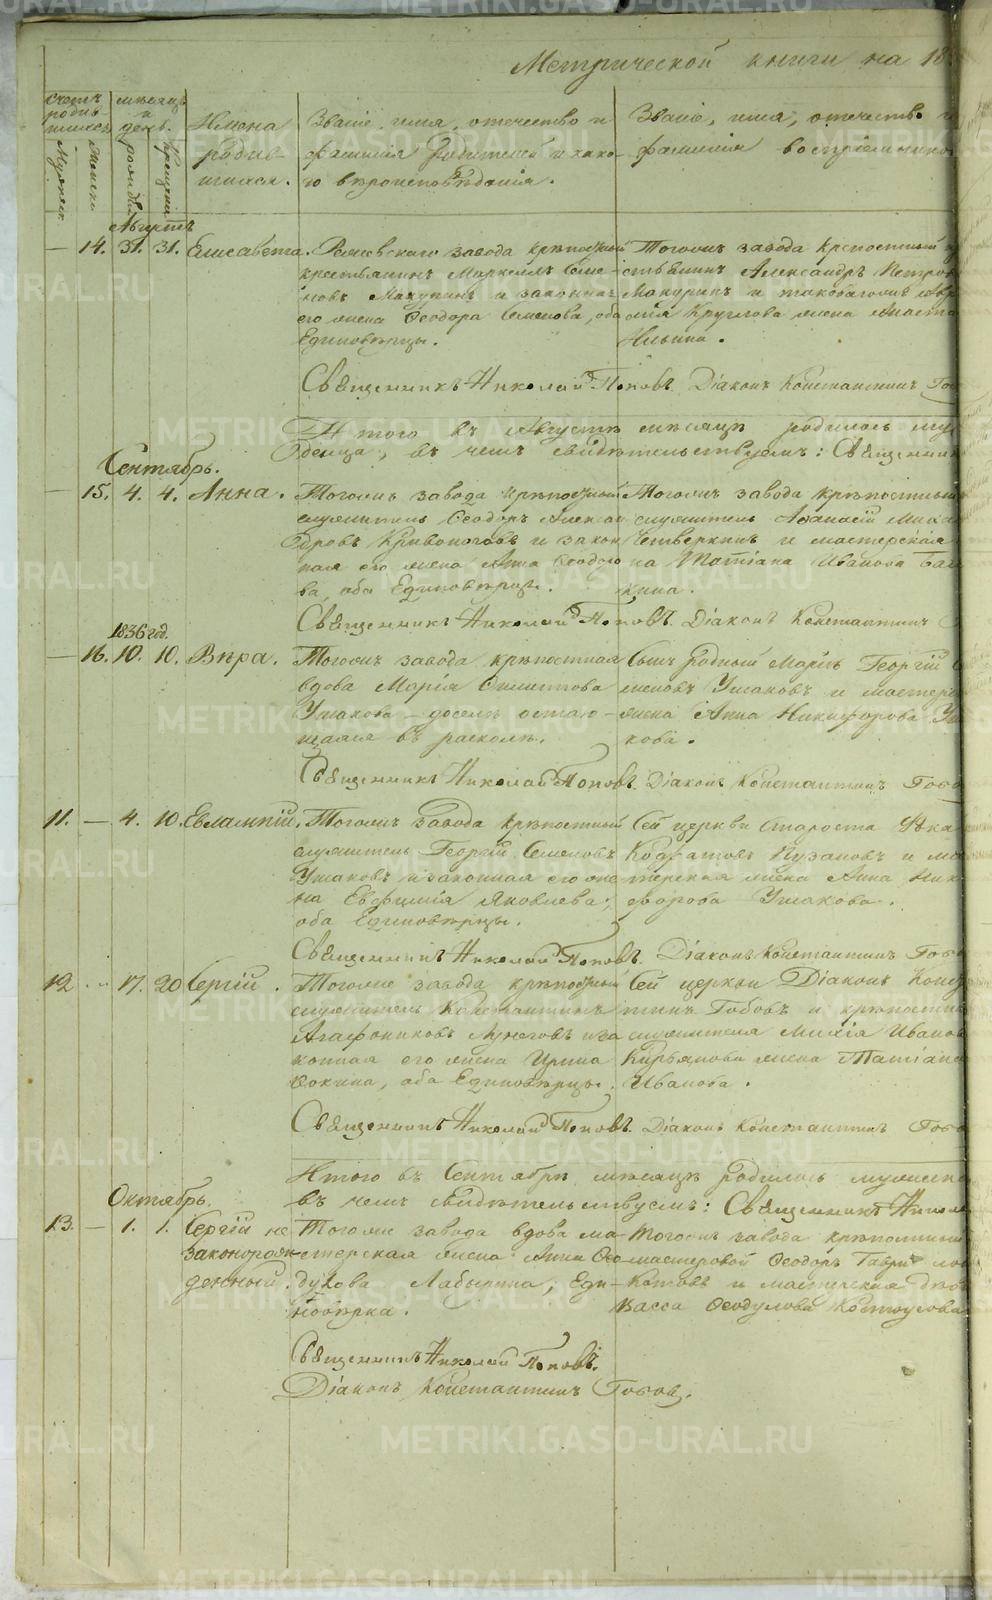 Метрической книги на 18
Счетъ родив- шихся
Мужеск.
Женска
мѣсяцъ и день.
рожде
крещенія
Имена родив- шихся.
Званіе, имя, отечество и фамилія родителей и како- го вѣроисповѣданія.
Званіе, имя, отечество и фамилія воспріемнико
Августъ
— 14. 31. 31. Елисавета. завода крѣпостный
крестьянинъ Маркеллъ Семе-
новъ Макуринъ и законная
его жена Ѳеодора Семенова, оба
Единовѣрцы.
Тогожъ завода крепостный
стьянинъ Александръ Петров
Макуринъ и
Круглова жена Анаста
Ильина.
Священникъ Николай Поповъ. Діаконъ Константинъ Гос
Итого въ Августѣ мѣсяцѣ родилось
въ чемъ свидѣтельствуемъ: Священник
Сентябрь.
— 15. 4. 4. Анна.
Тогожъ завода крѣпостный
служитель Ѳеодоръ Алексан
дровъ Кривоноговъ и закон
ная его жена Анна Ѳеодоро
ва, оба Единовѣрцы.
Тогожъ завода крѣпостный
служитель Аѳанасій Миха
Четверкинъ и мастерская
на Татіана Иванова Ба
кина.
Священникъ Николай Поповъ. Діаконъ Константинъ
1836 год.
— 16. 10. 10. Вѣра.
Тогожъ завода крѣпостная
вдова Марія
Ушакова — доселѣ остаю-
щаяся въ расколѣ.
Сынъ родный Маріи Георгій С
меновъ Ушаковъ и мастерс
жена Анна Никифорова Уш
кова.
Священникъ Николай Поповъ. Діаконъ Константинъ Гово
11. — 4. 10. Евлампій.
Тогожъ завода крѣпостный
служитель Георгій Семеновъ
Ушаковъ и законная его же
на Евфимія Яковлева,
оба Единовѣрцы.
Сей церкви Староста
Кодратовъ Пузановъ и ма
стерская жена Анна Ник
форова Ушакова.
Священникъ Николай Поповъ. Діаконъ Константинъ Гово
12. — 17. 20. Сергій.
Тогоже завода крѣпостный
служитель Константинъ
Агафониковъ и за
конная его жена Ирина
Ѳокина, оба Единовѣрцы.
Сей церкви Діаконъ Конс
тинъ Гобовъ и крѣпостна
служителя Иванов
Кирьянова жена Татіана
Иванова.
Священникъ Николай Поповъ. Діаконъ Константинъ Гово
Итого въ Сентябрѣ мѣсяцѣ родилось мужеска
въ чемъ свидѣтельствуемъ: Священникъ Никола
Октябрь.
13. — 1. 1. Сергій не
законорож
денный.
Тогоже завода вдова ма-
стерская жена Анна Ѳео
дулова Лабырина, Еди-
новѣрка.
Тогожъ завода крѣпостный
мастеровой Ѳеодоръ Гаври
Котовъ и мастерская
Васса Ѳеодулова
Священникъ Николай Поповъ.
Діаконъ Константинъ Гобовъ.
METRIKI.GASO-URAL.RU